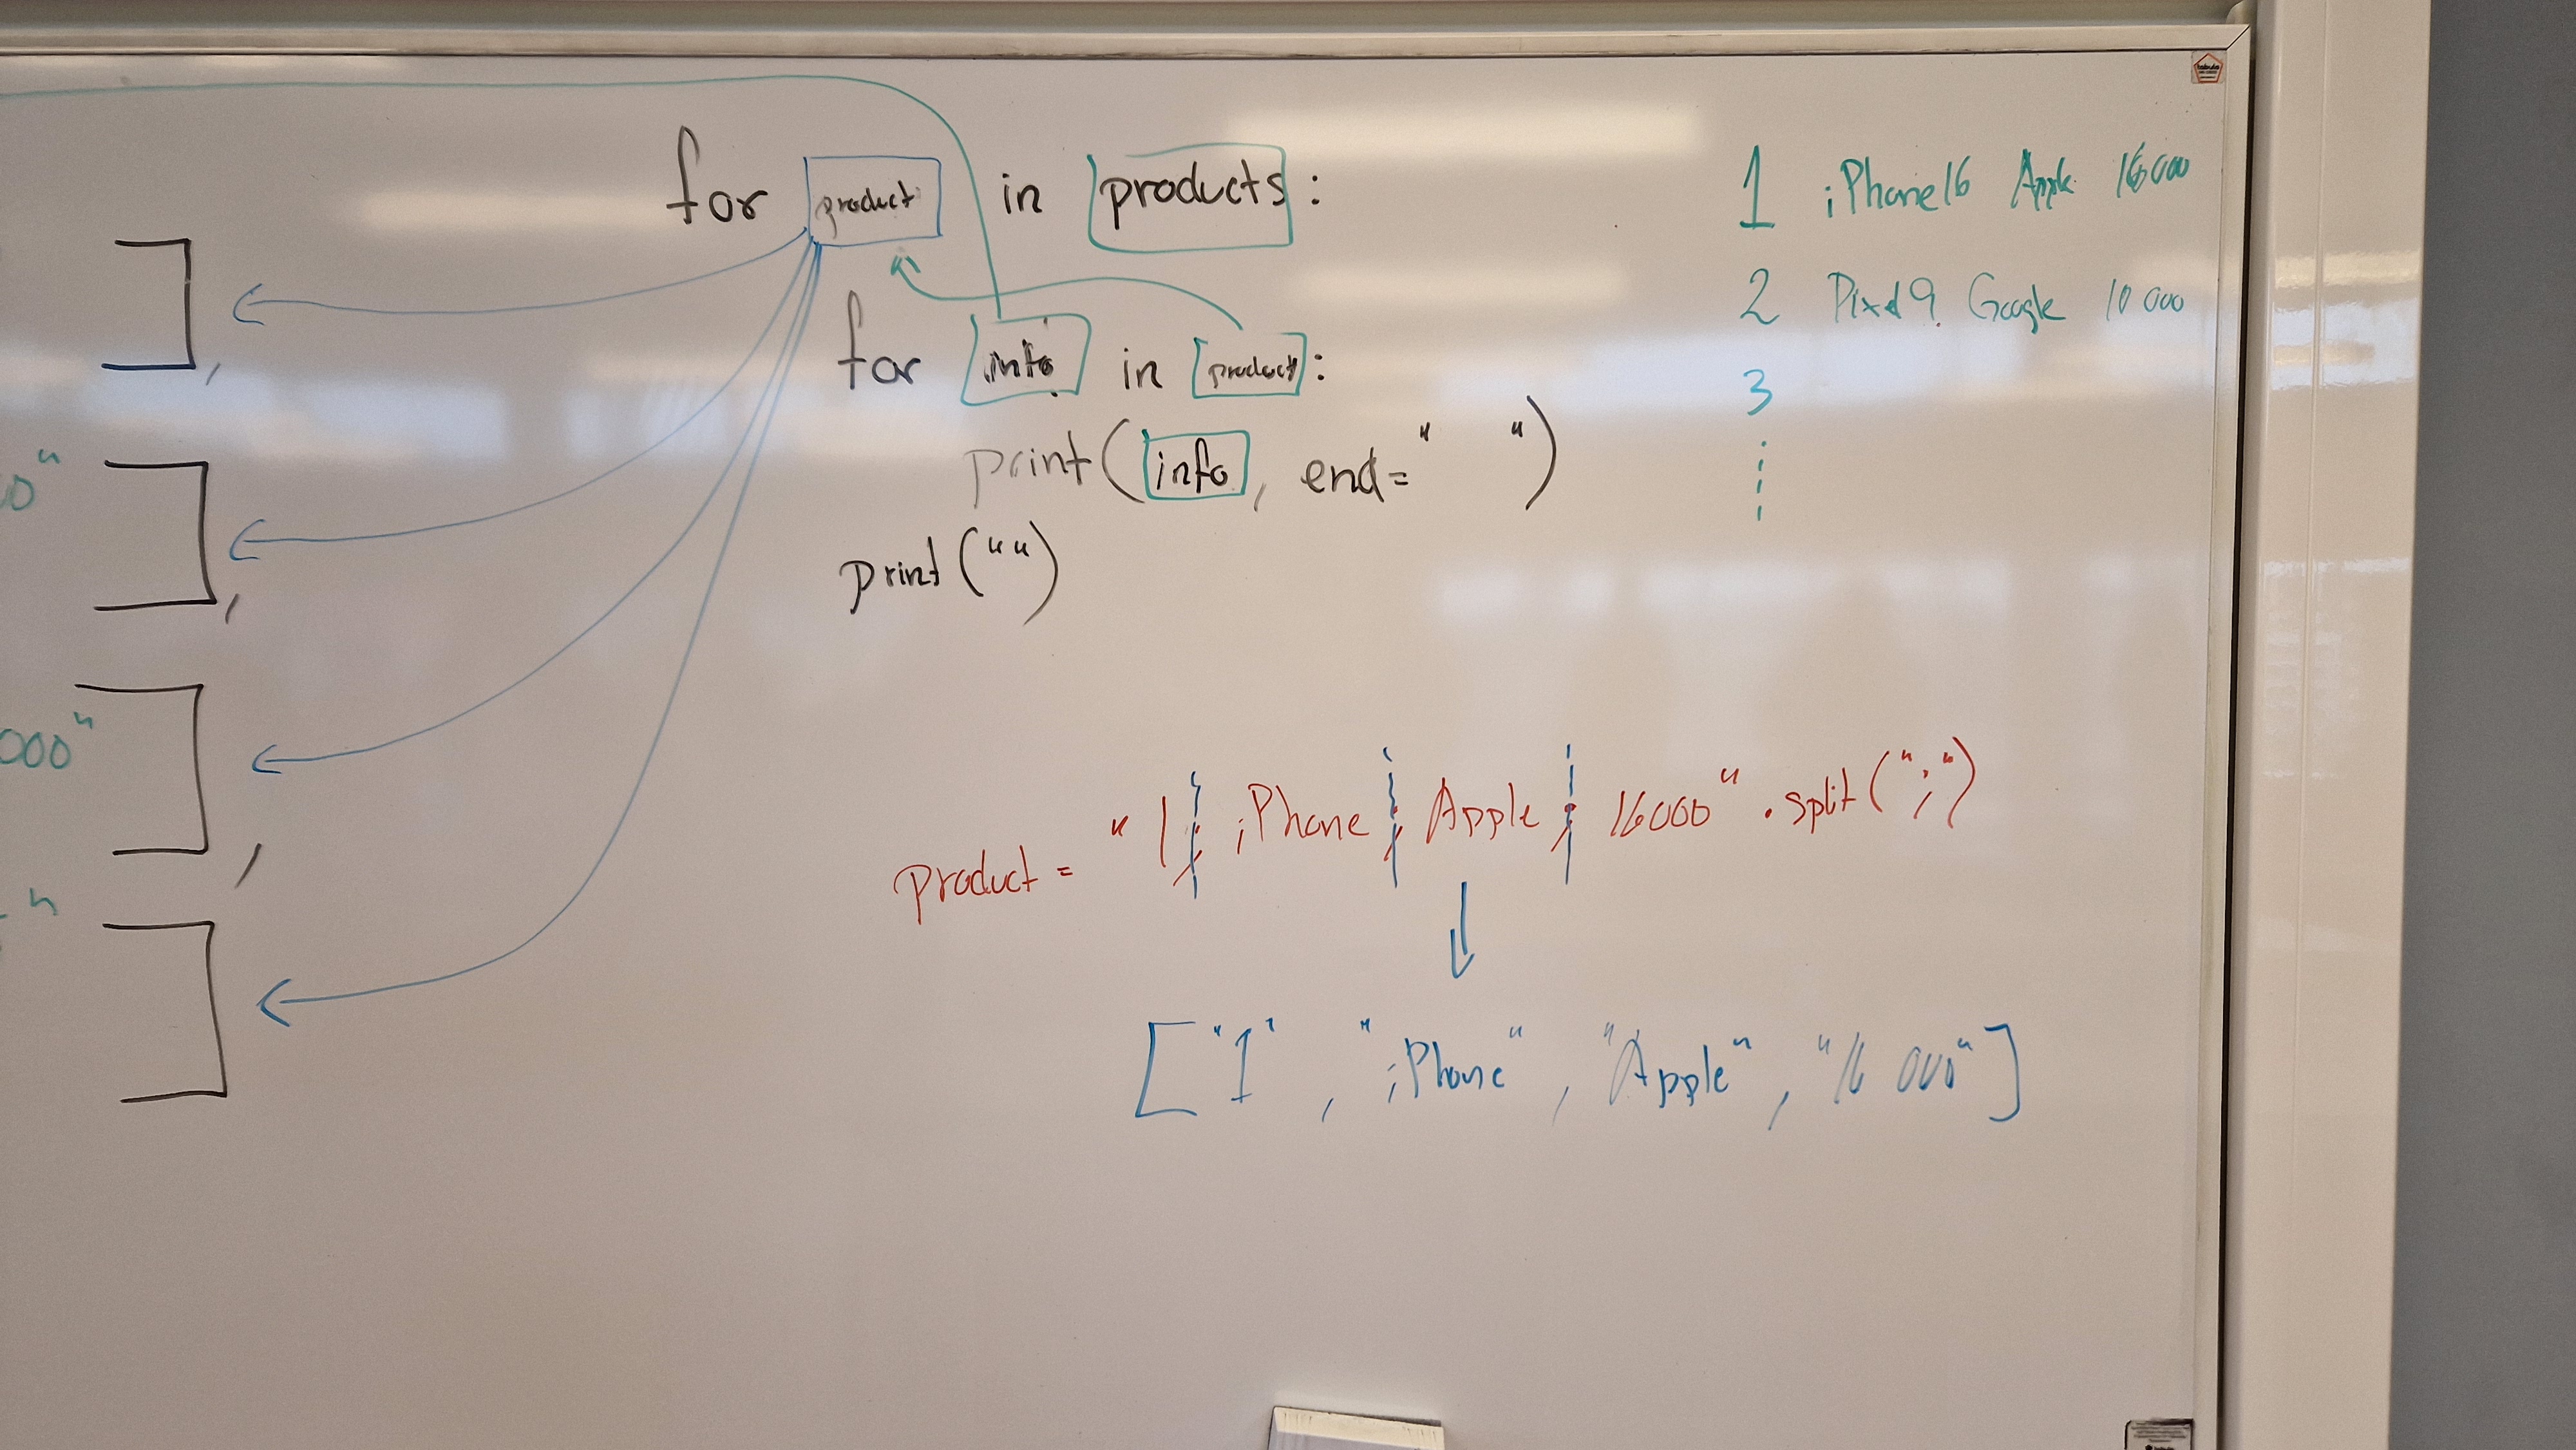 for product in products:
for info in product:
print(info, end=" ")
print("")
1 iPhone16 Apple 16000
2 Pixel9 Google 10 000
3
0"
000"
"
product = "1; iPhone; Apple; 16000".split(";")
["1", "iPhone", "Apple", "16 000"]